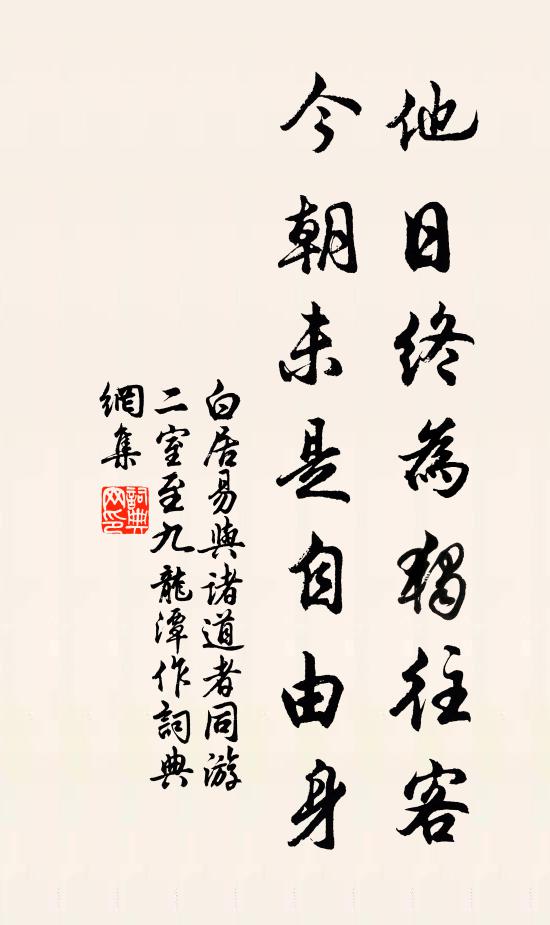 他日終為獨往客
今朝未是自由身
白居易與诸道者同游
二室至九龍潭作詞典
網集
詞典網印